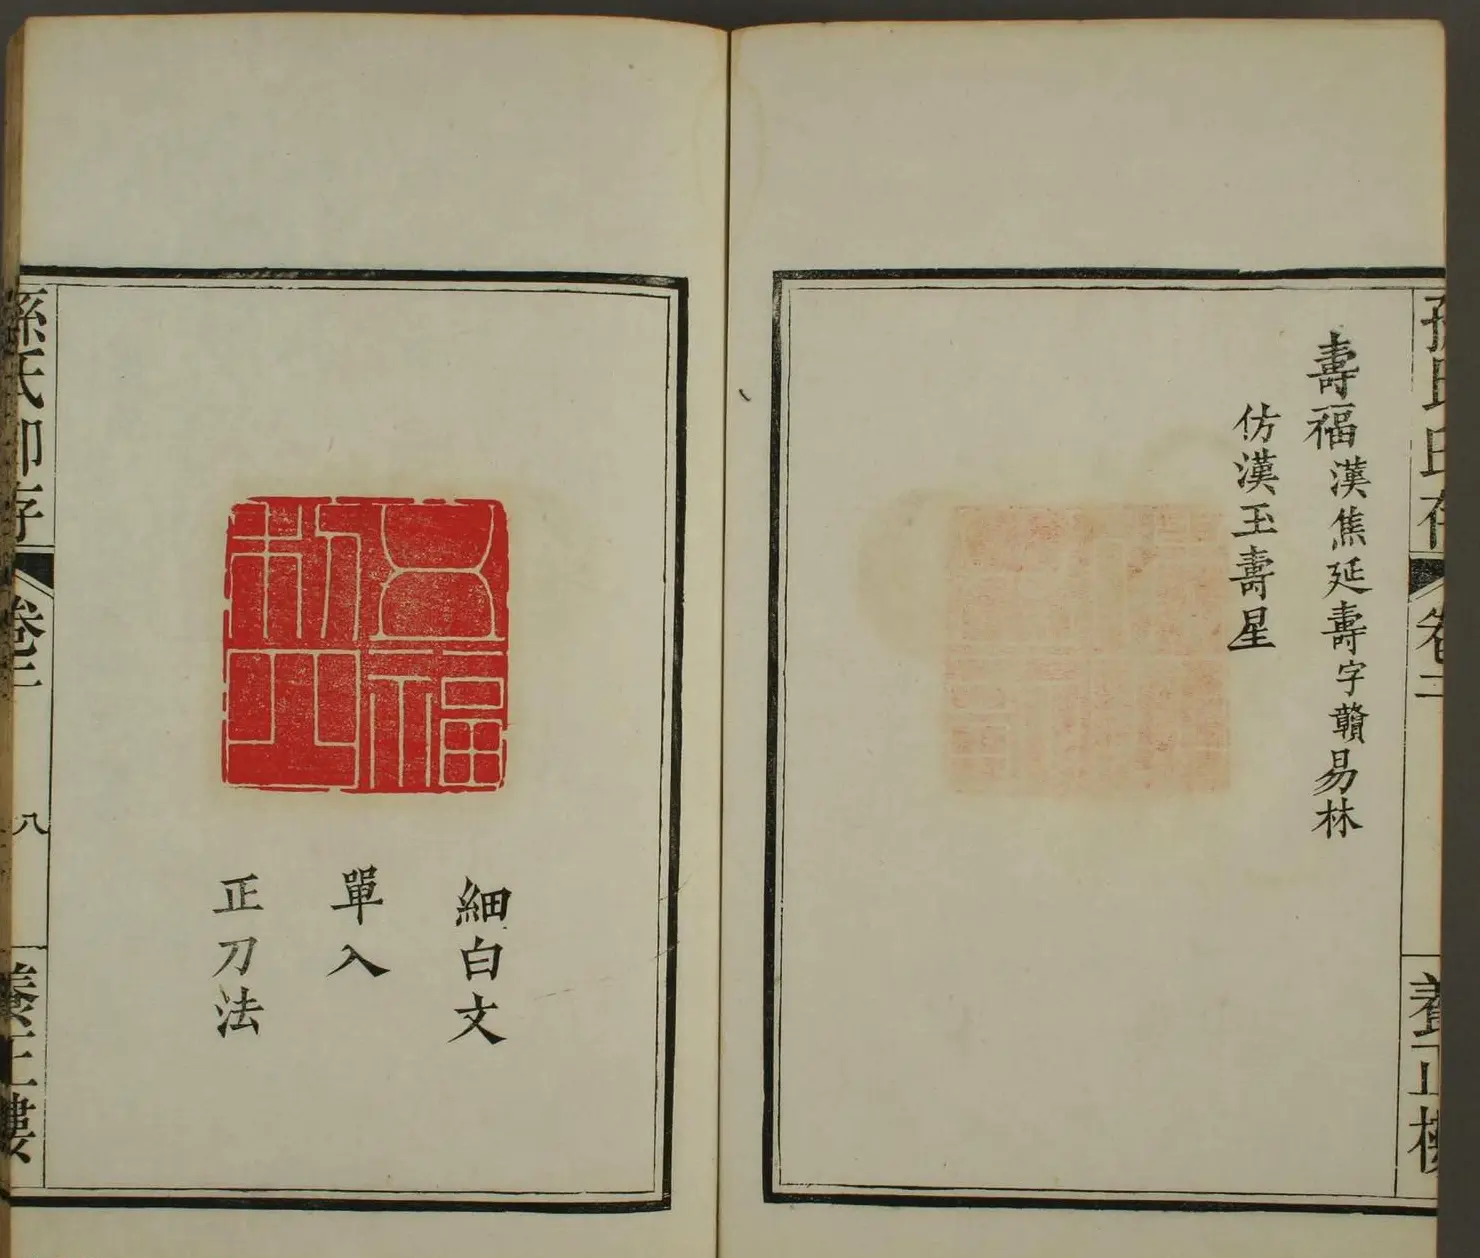 孫氏印存
卷二
養正樓
壽福漢焦延壽字贛易林
仿漢玉壽星
細白文
單入
正刀法
孫氏印存
卷二
八
養正樓